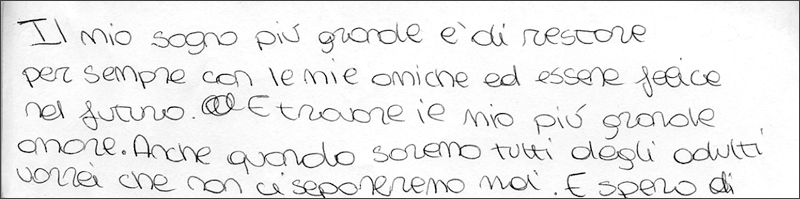 Il mio sogno più grande è di restare
per sempre con le mie amiche ed essere felice
nel futuro. E trovare il mio più grande
amore. Anche quando saremo tutti degli adulti
vorrei che non ci separeremo mai. E spero di